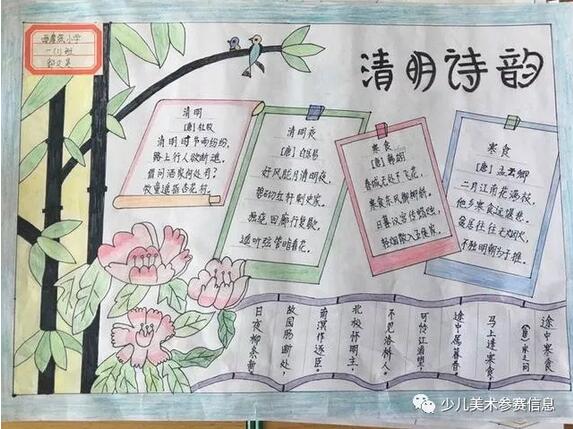 小学
一(1)班
清明诗韵
清明
[唐] 杜牧
清明时节雨纷纷,
路上行人欲断魂。
借问酒家何处有?
牧童遥指杏花村。
清明夜
[唐] 白居易
好风胧月清明夜,
碧砌红轩刺史家。
独绕回廊行复歇,
遥听弦管暗看花。
寒食
[唐] 韩翃
春城无处不飞花,
寒食东风御柳斜。
日暮汉宫传蜡烛,
轻烟散入五侯家。
寒食
[唐] 孟云卿
二月江南花满枝,
他乡寒食远堪悲。
贫居往往无烟火,
不独明朝为子推。
途中寒食
(唐) 宋之问
马上逢寒食,
途中属暮春。
可怜江浦望,
不见洛桥人。
北极怀明主,
南溟作逐臣。
故园肠断处,
日夜柳条新
少儿美术参赛信息